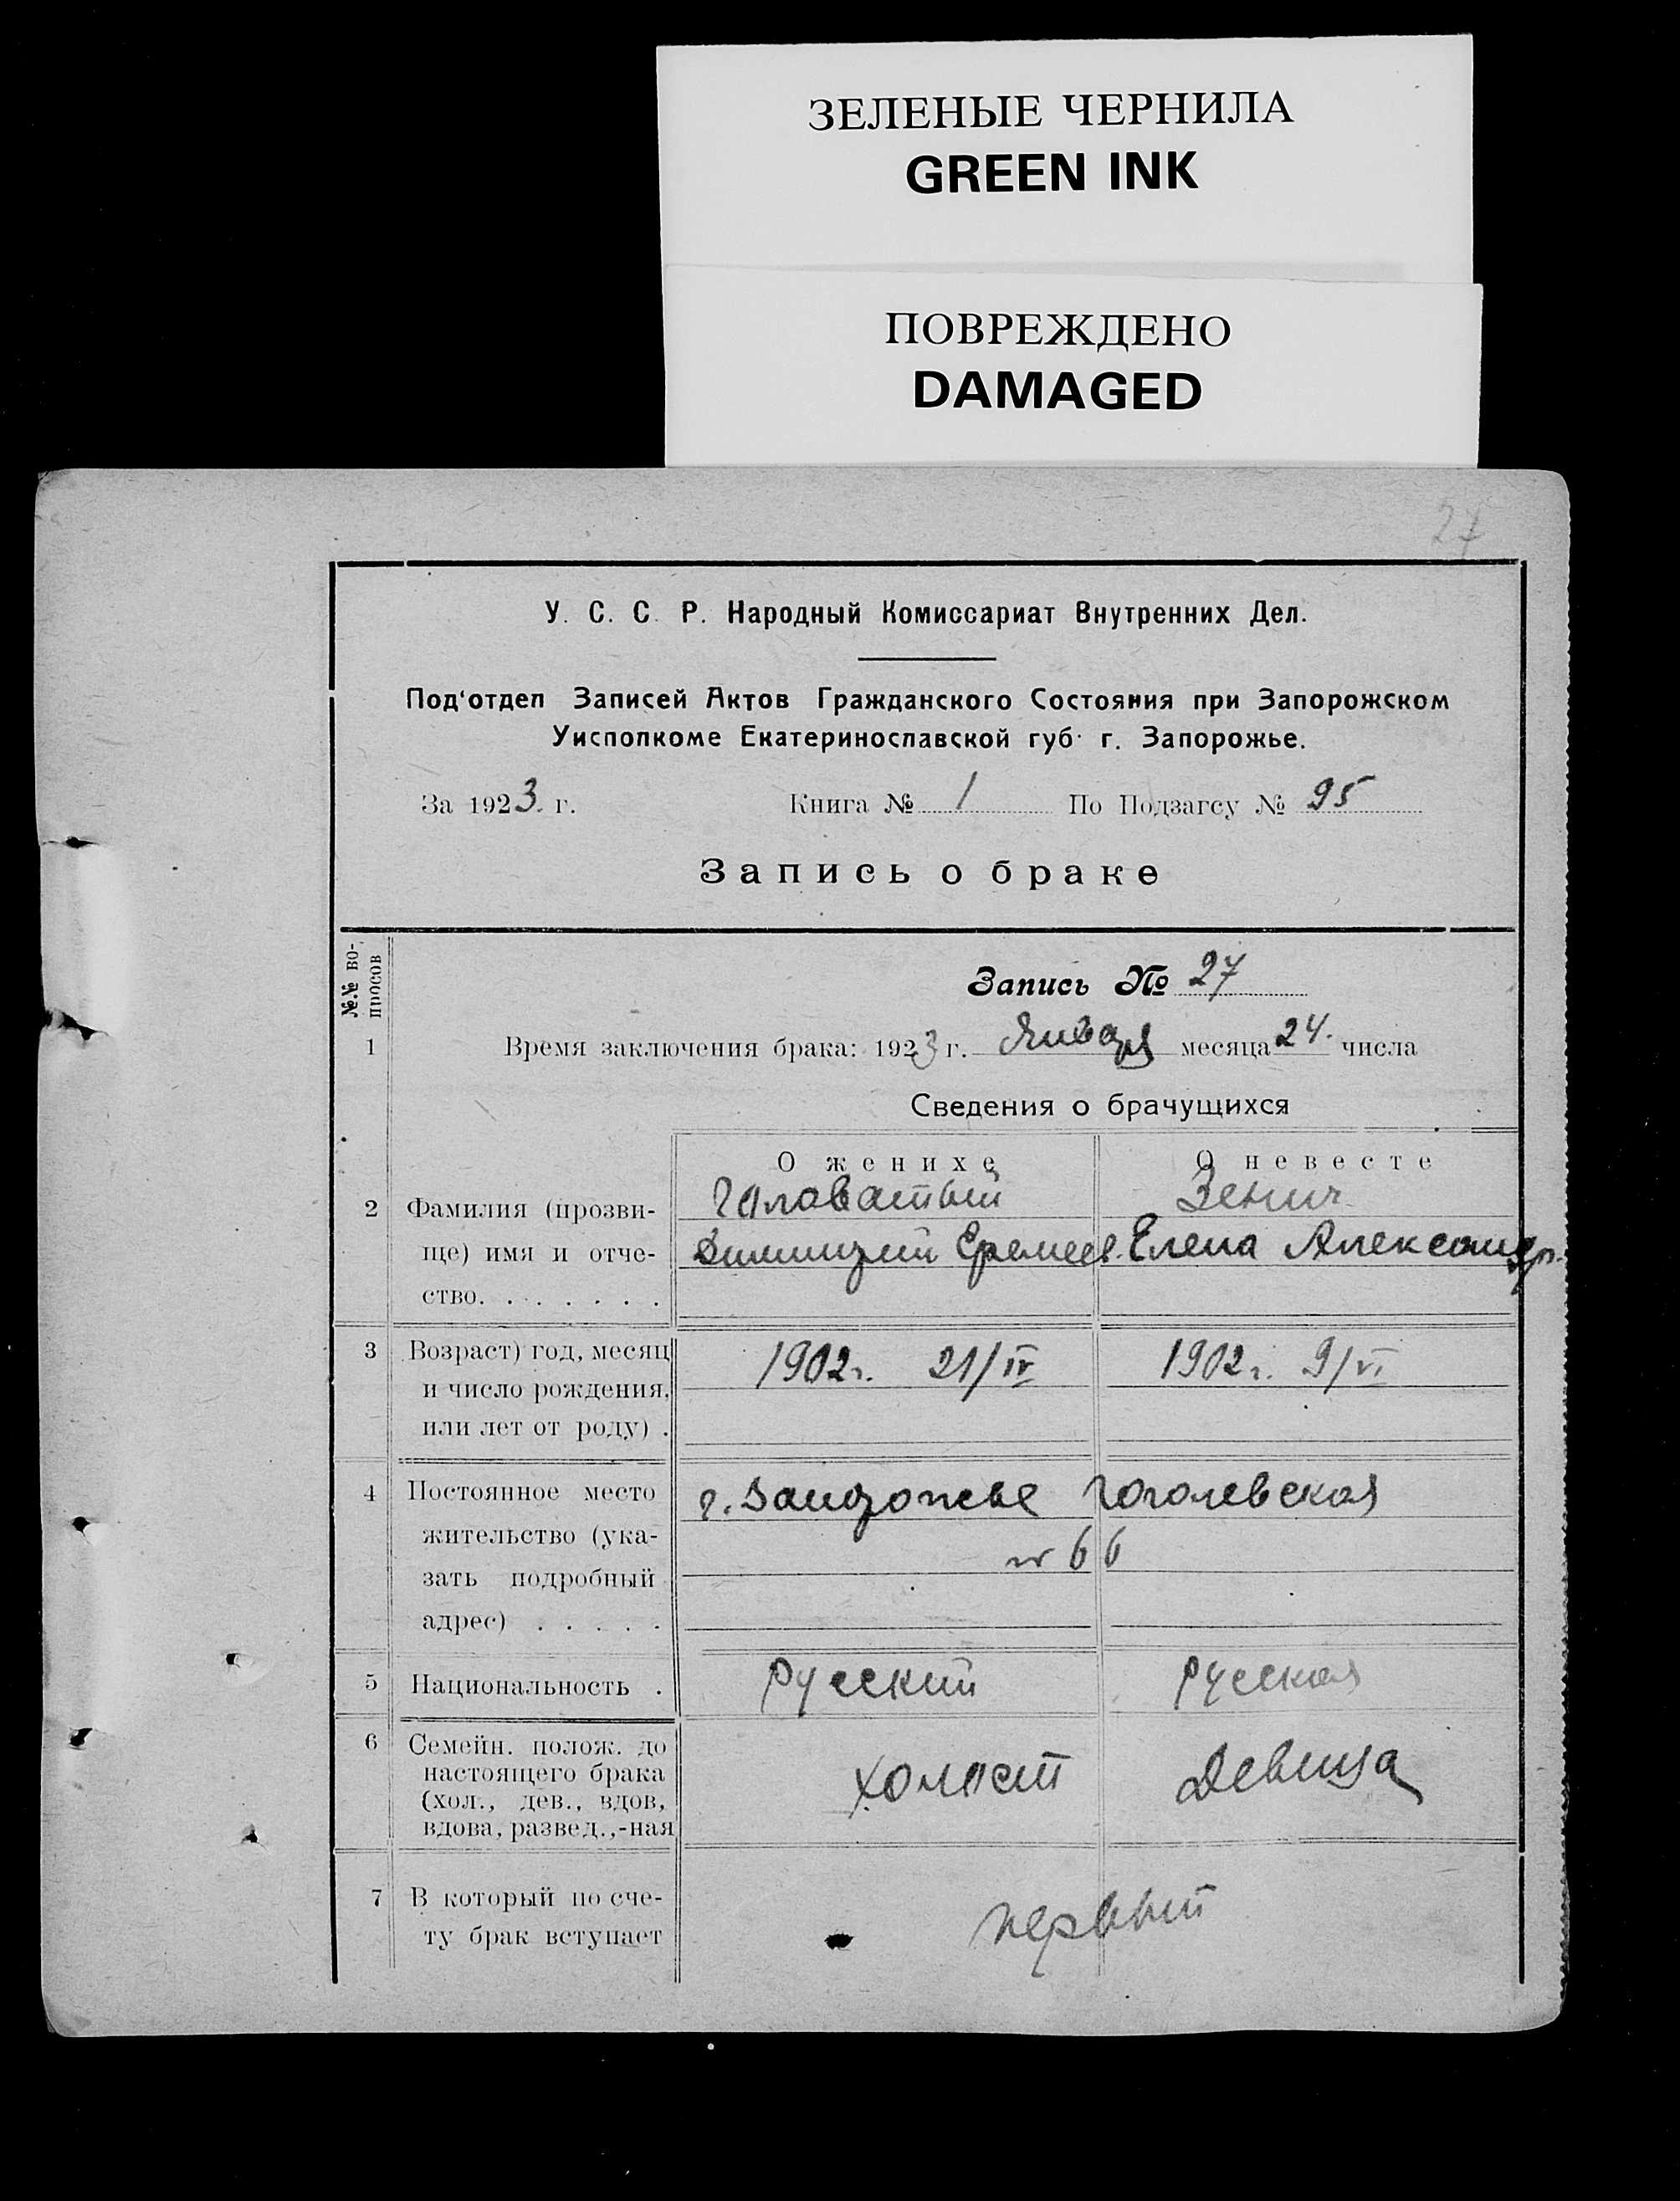 ЗЕЛЕНЫЕ ЧЕРНИЛА
GREEN INK
ПОВРЕЖДЕНО
DAMAGED
27
У. С. С. Р. Народный Комиссариат Внутренних Дел.
Под‘отдел Записей Актов Гражданского Состояния при Запорожском
Уисполкоме Екатеринославской губ. г. Запорожье.
За 1923 г. Книга № 1 По Подзагсу № 95
Запись о браке
№.№ во-
просов
Запись № 27
1 Время заключения брака: 1923 г. Января месяца 24. числа
Сведения о брачущихся
О женихе О невесте
2 Фамилия (прозви- Головатый Зенич
ще) имя и отче- Димитрий Еремеев. Елена Александр.
ство. . . . . . . .
3 Возраст) год, месяц 1902г. 21/IV 1902г. 9/VI
и число рождения,
или лет от роду) .
4 Постоянное место г. Запорожье Гоголевская
жительство (ука- № 66
зать подробный
адрес) . . . . .
5 Национальность . Русский Русская
6 Семейн. полож. до
настоящего брака холост Девица
(хол., дев., вдов,
вдова, развед.,-ная
7 В который по сче- первый
ту брак вступает